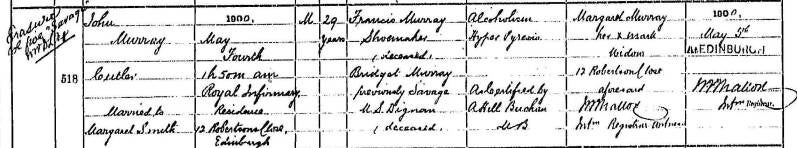 Erasure
of line "Savage"
518
John
Murray
Cutler
Married to
Margaret Smith
1900,
May
Fourth
1h 50m am
Royal Infirmary
Residence,
12 Robertsons Close,
Edinburgh
M
29
years
Francis Murray
Shoemaker
(deceased)
Bridget Murray
previously Savage
M.S. Dignan
(deceased)
Alcoholism
Hyper Pyrexia
As Certified by
A Hill Buchan
M B
Margaret Murray
her x mark
Widow
12 Robertsons Close
aforesaid
Registrar Witness
1900,
May 5th
At EDINBURGH
Registrar